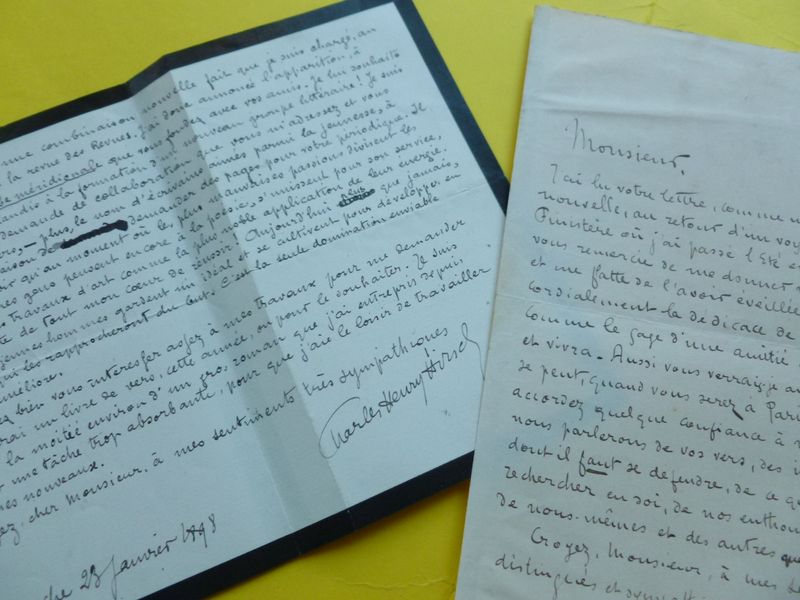 une combinaison nouvelle fait que je suis chargé, au
la revue des Revues. J'ai donc annoncé l'apparition, à
méridionale que vous fondez avec vos amis. Je lui souhaite
à la formation d'un nouveau groupe littéraire! Je suis
demande de collaboration que vous m'adressez et vous
plus, le nom d'écrivains aimés parmi la jeunesse, à
demander des pages pour votre périodique. Je
qu'au moment où les plus mauvaises passions divisent les
gens peuvent encore à la poésie, s'unissent pour son service,
travaux d'art comme la plus noble application de leur énergie.
de tout mon cœur de réussir. Aujourd'hui plus que jamais,
jeunes hommes gardent un idéal et se cultivent pour développer en
qui les rapprocheront du but. C'est la seule domination enviable
améliore.
bien vous intéresser assez à mes travaux pour me demander
un livre de vers, cette année, on peut le souhaiter. Je suis
la moitié environ d'un gros roman que j'ai entrepris depuis
une tâche trop absorbante, pour que j'aie le loisir de travailler
nouveaux.
cher Monsieur, à mes sentiments très sympathiques
Charles Henry Hirsch
23 janvier 1898
Monsieur,
J'ai lu votre lettre, comme
nouvelle, au retour d'un
Finistère où j'ai passé l'Été
vous remercie de me donner
et me flatte de l'avoir éveillée
cordialement la dédicace de
comme le gage d'une amitié
et vivra. Aussi vous verrai-je
se peut, quand vous serez à Paris
accordez quelque confiance à
nous parlerons de vos vers, des
dont il faut se défendre, de ce
rechercher en soi, de nos
de nous-mêmes et des autres
Croyez, Monsieur, à mes
distingués et